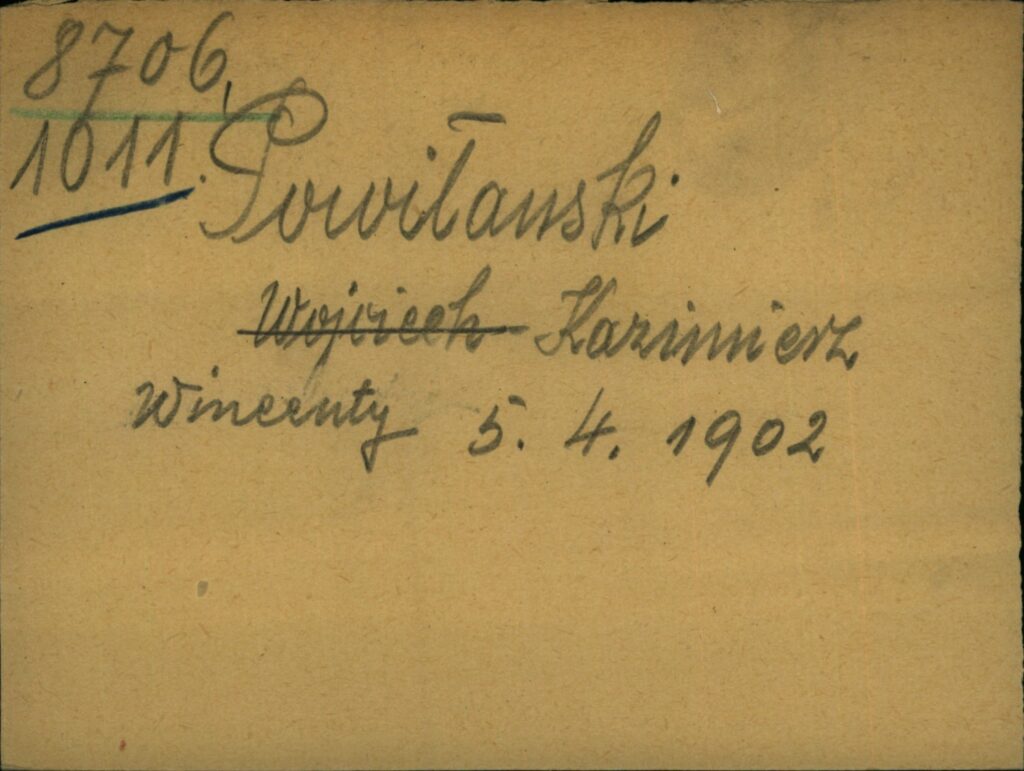 8706,
1011. Powiłanski
Wojciech - Kazimierz
Wincenty 5. 4. 1902